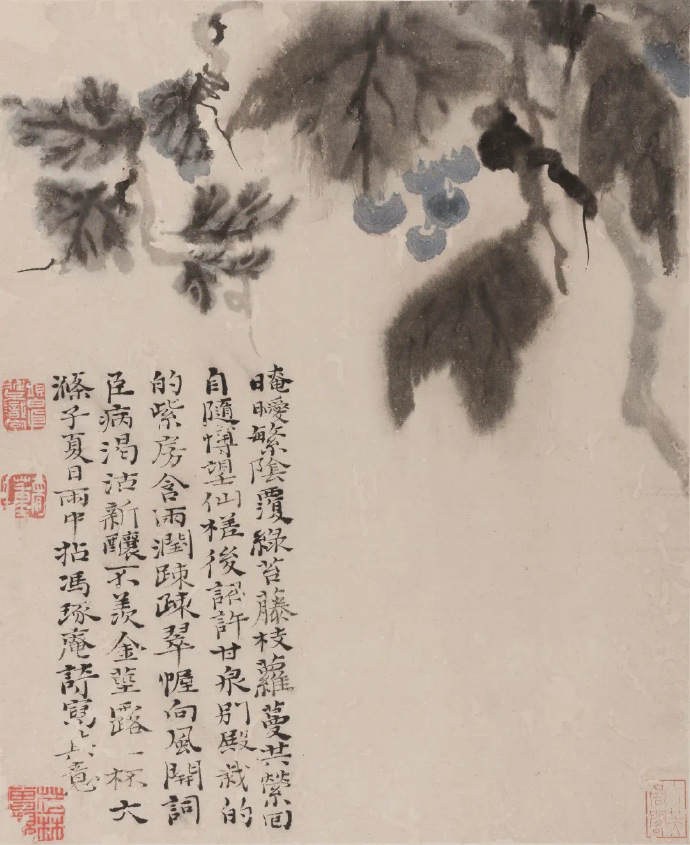 晻曖繁陰覆綠苔藤枝蘿蔓共縈回
自隨愽望仙槎後詔許甘泉別殿栽的
的紫房含雨潤踈踈翠幄向風開詞
臣病渴沾新釀不羨金莖露一杯大
滌子夏日雨中拈馮琢庵詩寫其意